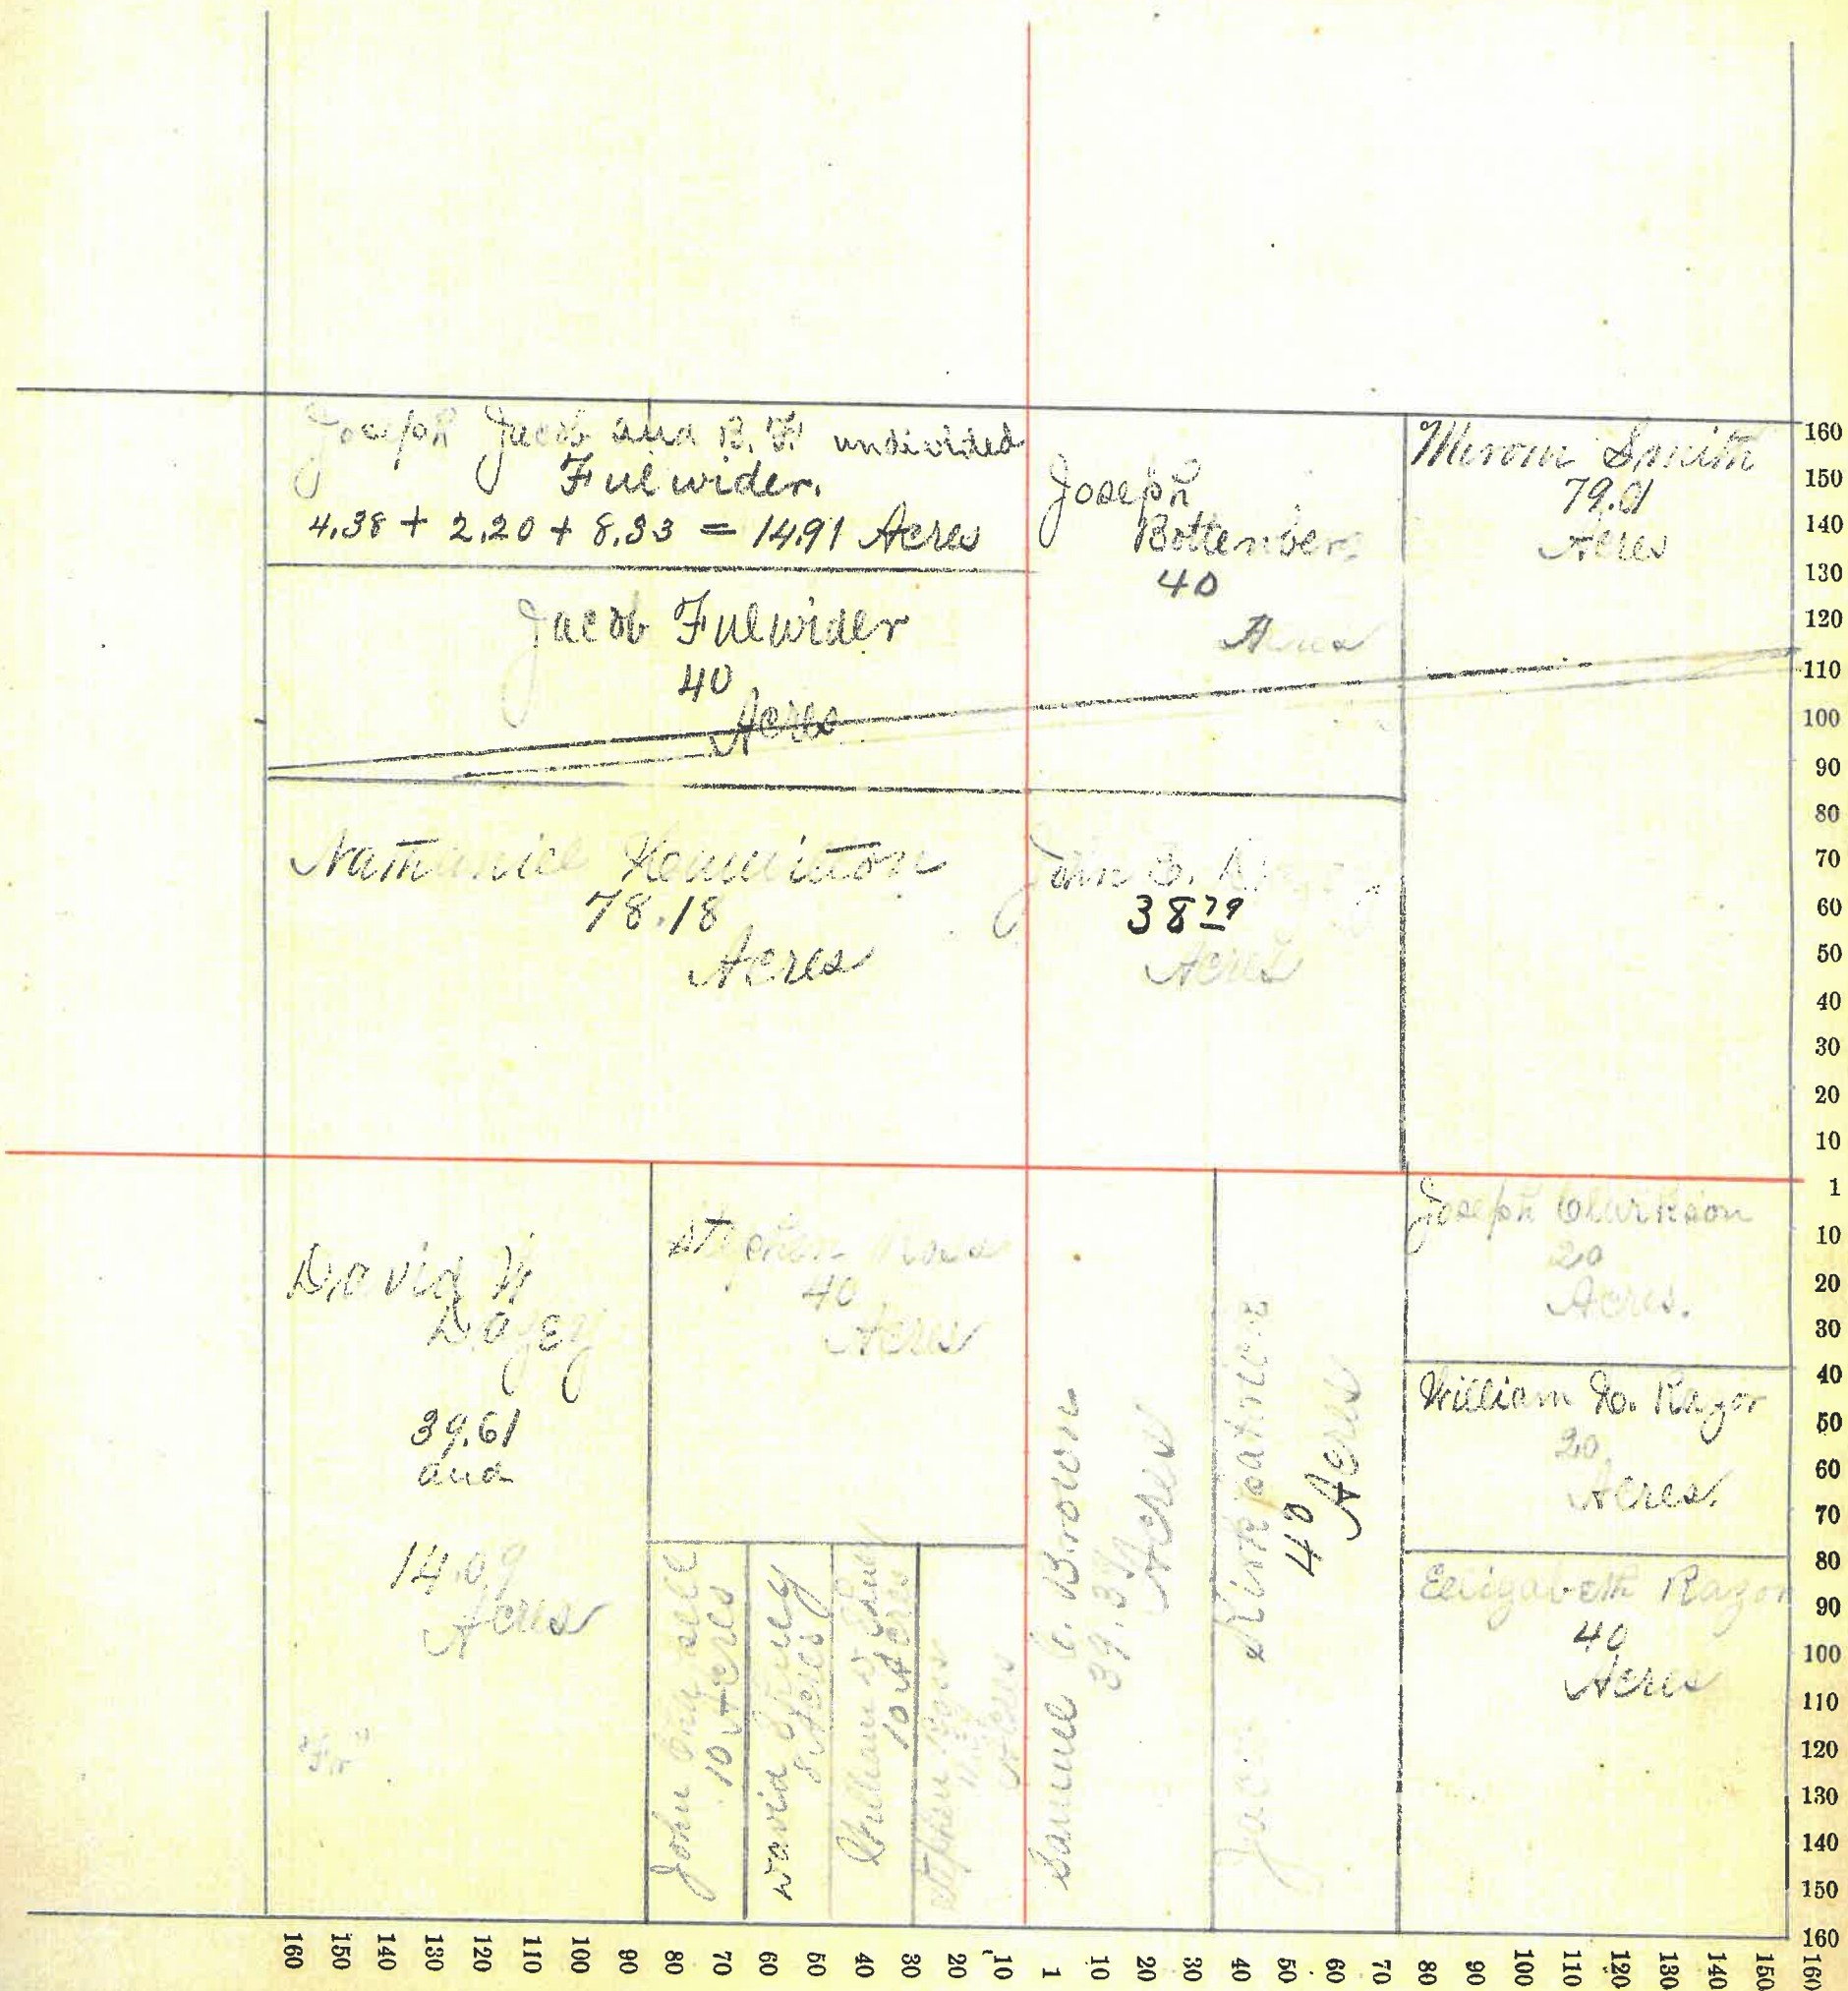 Joseph Jacob and B. F. undivided
Fulwider.
4.38 + 2.20 + 8.33 = 14.91 Acres
Joseph
Bottenberg
40
Acres
Smith
79.01
Acres
Jacob Fulwider
40
Acres
Nathaniel
78.18
Acres
John
38 79
Acres
David W
39.61
and
14.09
Acres
"Fr"
Stephen
40
Acres
John
10 Acres
David
8 Acres
William
10 Acres
Stephen
Acres
Samuel Brown
Acres
Kirkpatrick
40
Acres
Joseph Clarkson
20
Acres.
William Razor
20
Acres.
Elizabeth Razor
40
Acres
160
150
140
130
120
110
100
90
80
70
60
50
40
30
20
10
1
10
20
30
40
50
60
70
80
90
100
110
120
130
140
150
160
160 150 140 130 120 110 100 90 80 70 60 50 40 30 20 10 1 10 20 30 40 50 60 70 80 90 100 110 120 130 140 150 160